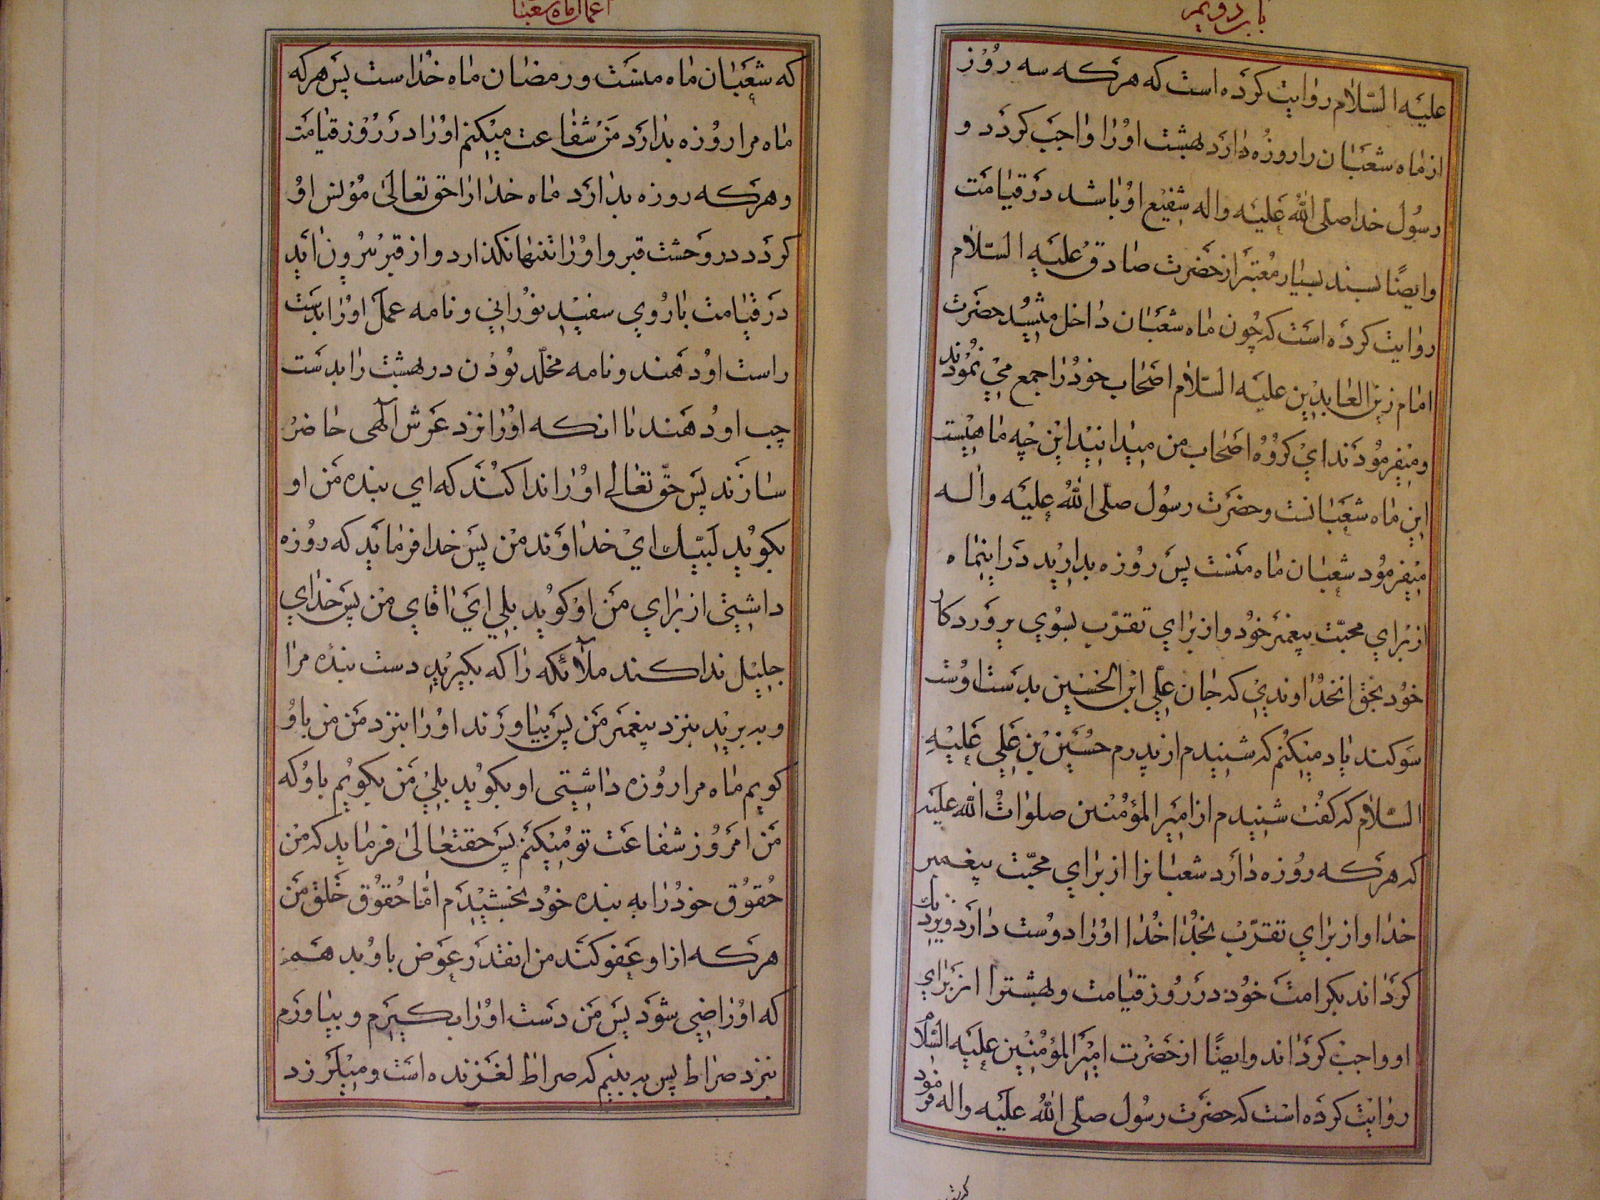 باب دویم
علیه السلام روایت کرده است که هرکه سه روز
از ماه شعبان را روزه دارد بهشت او را واجب کردد و
رسول خدا صلی الله علیه واله شفیع او باشد در قیامت
وایضا بسند بسیار معتبر از حضرت صادق علیه السلام
روایت کرده است که چون ماه شعبان داخل میشد حضرت
امام زین العابدین علیه السلام اصحاب خود را جمع می نمودند
و میفرمودند ای کروه اصحاب من میدانید این چه ماهیست
این ماه شعبانست و حضرت رسول صلی الله علیه واله
میفرمود شعبان ماه منست پس روزه بدارید در اینماه
از برای محبت پیغمبر خود و از برای تقرب بسوی پروردکار
خود بحق انخداوندی که جان علی ابن الحسین بدست اوست
سوکند یاد میکنم که شنیدم از پدرم حسین بن علی علیه
السلام که کفت شنیدم از امیر المؤمنین صلوات الله علیه
که هرکه روزه دارد شعبانرا از برای محبت پیغمبر
خدا و از برای تقرب بخدا خدا او را دوست دارد و نزدیک
کرداند بکرامت خود در روز قیامت و بهشترا از برای
او واجب کرداند وایضا از حضرت امیر المؤمنین علیه السلام
روایت کرده است که حضرت رسول صلی الله علیه واله فرمود
اعمال ماه شعبان
که شعبان ماه منست و رمضان ماه خداست پس هرکه
ماه مرا روزه بدارد من شفاعت میکنم او را در روز قیامت
و هرکه روزه بدارد ماه خدا را حق تعالی مونس او
کردد در وحشت قبر و او را تنها نکذارد و از قبر بیرون اید
در قیامت با روی سفید نورانی و نامه عمل او را بدست
راست او دهند و نامه مخلد بودن در بهشت را بدست
چپ او دهند تا انکه او را نزد عرش الهی حاضر
سازند پس حق تعالی او را ندا کند که ای بنده من او
بکوید لبیک ای خداوند من پس خدا فرماید که روزه
داشتی از برای من او کوید بلی ای اقای من پس خدای
جلیل ندا کند ملائکه را که بکیرید دست بنده مرا
و به برید بنزد پیغمبر من پس بیاورند او را بنزد من من باو
کویم ماه مرا روزه داشتی او بکوید بلی من بکویم باو که
من امروز شفاعت تو میکنم پس حقتعالی فرماید که من
حقوق خود را به بنده خود بخشیدم اما حقوق خلق من
هرکه از او عفو کند من انقدر عوض باو بدهم
که او راضی شود پس من دست او را بکیرم و بیاورم
بنزد صراط پس به بینم که صراط لغزنده است و میلرزد